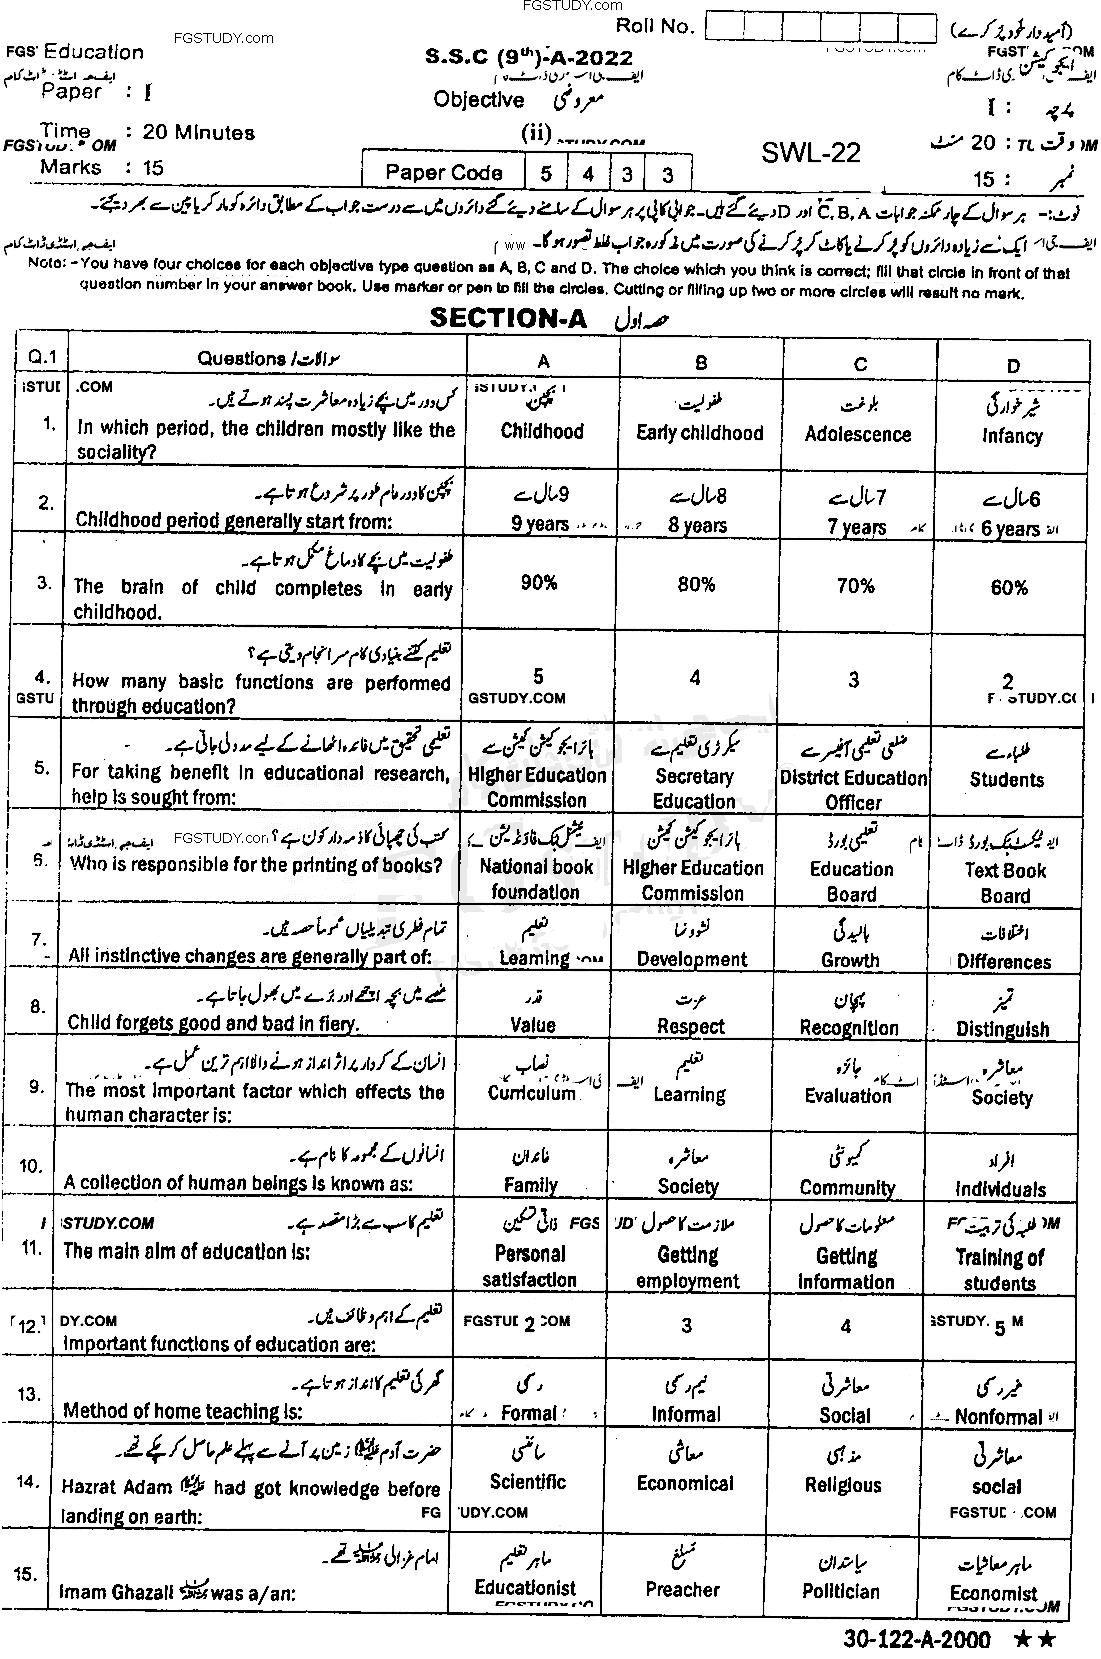 FGSTUDY.com
Roll No. (امیدوار خود پُر کرے)
FGSTUDY.com
Education S.S.C (9th)-A-2022 ایجوکیشن
Paper : I Objective معروضی پرچہ : I
Time : 20 Minutes (ii) SWL-22 وقت : 20 منٹ
Marks : 15 Paper Code 5 4 3 3 نمبر : 15
نوٹ:- ہر سوال کے چار ممکنہ جوابات A، B، C اور D دیئے گئے ہیں۔ جوابی کاپی پر ہر سوال کے سامنے دیئے گئے دائروں میں سے درست جواب کے مطابق دائرہ کو مارکر یا پین سے بھر دیجئے۔
ایک سے زیادہ دائروں کو پُر کرنے یا کاٹ کر پُر کرنے کی صورت میں مذکورہ جواب غلط تصور ہو گا۔
Note: - You have four choices for each objective type question as A, B, C and D. The choice which you think is correct; fill that circle in front of that
question number in your answer book. Use marker or pen to fill the circles. Cutting or filling up two or more circles will result no mark.
SECTION-A حصہ اول
Q.1 Questions / سوالات A B C D
کس دور میں بچے زیادہ معاشرت پسند ہوتے ہیں۔ بچپن طفولیت بلوغت شیر خوارگی
1. In which period, the children mostly like the Childhood Early childhood Adolescence Infancy
sociality?
بچپن کا دور عام طور پر شروع ہوتا ہے۔ 9 سال سے 8 سال سے 7 سال سے 6 سال سے
2. Childhood period generally start from: 9 years 8 years 7 years 6 years
طفولیت میں بچے کا دماغ مکمل ہوتا ہے۔
3. The brain of child completes in early 90% 80% 70% 60%
childhood.
تعلیم کتنے بنیادی کام سرانجام دیتی ہے؟
4. How many basic functions are performed 5 4 3 2
through education? GSTUDY.COM
تعلیمی تحقیق میں فائدہ اٹھانے کے لیے مدد لی جاتی ہے۔ ہائر ایجوکیشن کمیشن سے سیکرٹری تعلیم سے ضلعی تعلیمی آفیسر سے طلباء سے
5. For taking benefit in educational research, Higher Education Secretary District Education Students
help is sought from: Commission Education Officer
کتب کی چھپائی کا ذمہ دار کون ہے؟ نیشنل بک فاؤنڈیشن ہائر ایجوکیشن کمیشن تعلیمی بورڈ ٹیکسٹ بک بورڈ
6. Who is responsible for the printing of books? National book Higher Education Education Text Book
foundation Commission Board Board
تمام فطری تبدیلیاں عموماً حصہ ہیں۔ تعلیم نشوونما بالیدگی اختلافات
7. All instinctive changes are generally part of: Learning Development Growth Differences
غصے میں بچہ اچھے اور بُرے میں بھول جاتا ہے۔ قدر عزت پہچان تمیز
8. Child forgets good and bad in fiery. Value Respect Recognition Distinguish
انسان کے کردار پر اثر انداز ہونے والا اہم ترین عمل ہے۔ نصاب تعلیم جائزہ معاشرہ
9. The most important factor which effects the Curriculum Learning Evaluation Society
human character is:
انسانوں کے مجموعہ کا نام ہے۔ خاندان معاشرہ کمیونٹی افراد
10. A collection of human beings is known as: Family Society Community Individuals
STUDY.COM تعلیم کا سب سے بڑا مقصد ہے۔ ذاتی تسکین ملازمت کا حصول معلومات کا حصول طلبہ کی تربیت
11. The main aim of education is: Personal Getting Getting Training of
satisfaction employment information students
تعلیم کے اہم وظائف ہیں۔
12. Important functions of education are: 2 3 4 5
گھر کی تعلیم کا انداز ہوتا ہے۔ رسمی نیم رسمی معاشرتی غیر رسمی
13. Method of home teaching is: Formal Informal Social Nonformal
حضرت آدمؑ زمین پر آنے سے پہلے علم حاصل کر چکے تھے۔ سائنسی معاشی مذہبی معاشرتی
14. Hazrat Adam ؑ had got knowledge before Scientific Economical Religious social
landing on earth:
امام غزالیؒ تھے۔ ماہر تعلیم مبلغ سیاستدان ماہر معاشیات
15. Imam Ghazali ؒ was a/an: Educationist Preacher Politician Economist
30-122-A-2000 ★★